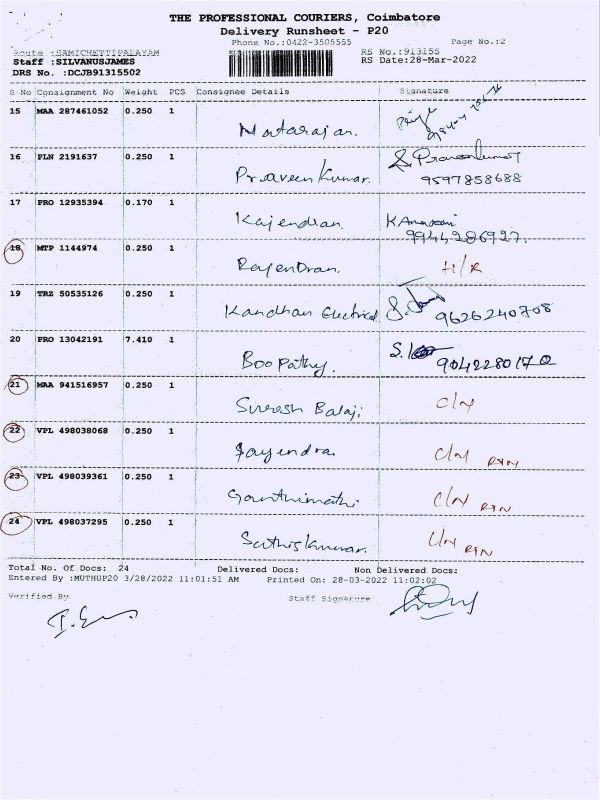 THE PROFESSIONAL COURIERS, Coimbatore
Delivery Runsheet - P20
Phone No.:0422-3505555 Page No.:2
Route :SAMICHETTIPALAYAM RS No.:913155
Staff :SILVANUSJAMES RS Date:28-Mar-2022
DRS No. :DCJB91315502
S No Consignment No Weight PCS Consignee Details Signature
15 MAA 287461052 0.250 1 Natarajan.
16 PLN 2191637 0.250 1 Praveen Kumar. 9597858688
17 PRO 12935394 0.170 1 Kajendran. 9944286927.
18 MTP 1144974 0.250 1 Rajendran. H/R
19 TRZ 50535126 0.250 1 Kandhan Electrical 9626240708
20 PRO 13042191 7.410 1 Boopathy. 9042280170
21 MAA 941516957 0.250 1 Suresh Balaji C/N
22 VPL 498038068 0.250 1 Jayendra C/N RTN
23 VPL 498039361 0.250 1 Gomthimathi C/N RTN
24 VPL 498037295 0.250 1 Sathiskumar. C/N RTN
Total No. Of Docs: 24 Delivered Docs: Non Delivered Docs:
Entered By :MUTHUP20 3/28/2022 11:01:51 AM Printed On: 28-03-2022 11:02:02
Verified By Staff Signature